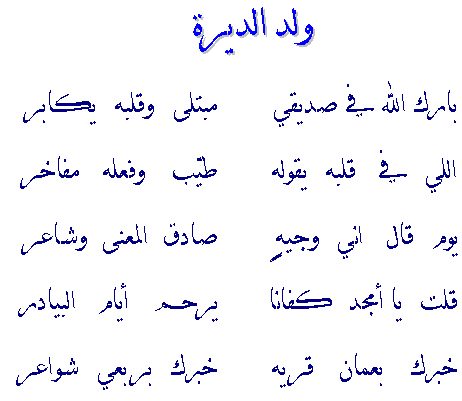 ولد الديرة
بارك الله في صديقي مبتلى وقلبه يكابر
اللي في قلبه يقوله طيّب وفعله مفاخر
يوم قال اني وجيهٍ صادق المعنى وشاعر
قلت يا أمجد كفانا يرحم أيام البيادر
خبرك بعمان قريه خبرك بربعي شواعر